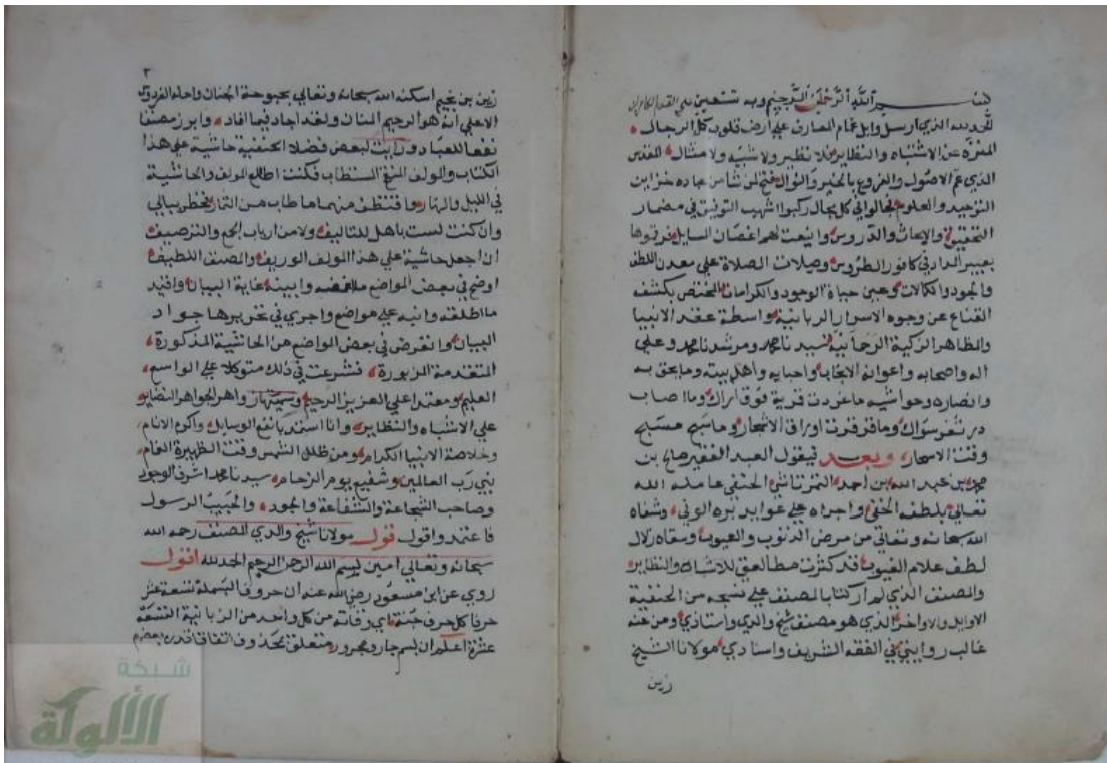 بسم الله الرحمن الرحيم وبه نستعين
الحمد لله الذي ارسل وابل غمام المعارف علي ارض قلوب كل الرجال
المنزه عن الاشتباه والنظاير فلا نظير ولا شبيه ولا مثال المقدس
الذي عم الاصول والفروع بالخير والنوال فتح لمن شا من عباده خزاين
التوحيد والعلوم في كل مجال ركبوا اشهب التوفيق في مضمار
التحقيق والابحاث والدروس وانيعت لهم اغصان المسايل فرقوها
بعبير المداد في كافور الطروس وصلات الصلاة علي معدن اللطف
والجود والكمالات وعين حياة الوجود والكرامات المختص بكشف
القناع عن وجوه الاسرار الربانية واسطة عقد الانبيا
والمظاهر الزكية الرحمانية سيدنا محمد ومرشدنا محمد وعلي
اله واصحابه واعوانه الانجاب واحبابه واهل بيته وما يحق به
وانصاره وحواشيه ما غردت قمرية فوق اراك وما اصاب
در ثغر سواك وما قرقرت اوراق الاشجار وما سبح مسبح
وقت الاسحار وبعد فيقول العبد الفقير صالح بن
محمد بن عبد الله بن احمد التمرتاشي الحنفي عامله الله
تعالي بلطفه الخفي واجراه علي عوايد بره الوفي وشفاه
الله سبحانه وتعالي من مرض الذنوب والعيوب وسقاه زلال
لطف علام الغيوب قد كثرت مطالعتي للاشباه والنظاير
والمصنف الذي لم ار كتابا لمصنف علي نسجه من الحنفية
الاوايل والاواخر الذي هو مصنف شيخ والدي واستاذي ومن عنه
غالب روايتي في الفقه الشريف واستادي مولانا الشيخ
زين
٢
زين بن نجيم اسكنه الله سبحانه وتعالي بحبوحة الجنان واحله الفردوس
الاعلي انه هو الرحيم المنان ولقد اجاد فيما افاد وابرز مصنفا
نفعا للعباد ورايت لبعض فضلا الحنفية حاشية علي هذا
الكتاب والمولف المستطاب فكنت اطالع المولف والحاشية
في الليل والنهار واقتطف منهما ما طاب من الثمار فخطر ببالي
وان كنت لست باهل للتاليف ولا من ارباب الجمع والترصيف
ان اجعل حاشية علي هذا المولف الوريف والمصنف اللطيف
اوضح في بعض المواضع ما غمض وابينه غاية البيان واقيد
ما اطلقه وانبه علي مواضع واجري في تحريرها جواد
البيان واتعرض في بعض المواضع من الحاشية المذكورة
المتقدمة المزبورة فشرعت في ذلك متوكلا علي الواسع
العليم ومعتمدا علي العزيز الرحيم وسميتها زواهر الجواهر النضاير
علي الاشباه والنظاير وانا استمد بانفع الوسايل واكرم الانام
وخلاصة الانبيا الكرام ومن ظلل الشمس وقت الظهيرة الغمام
نبي رب العالمين وشفيع يوم الزحام سيدنا محمد اشرف الوجود
وصاحب الشجاعة والشفاعة والجود والحبيب الرسول
فاعتمد واقول قول مولانا شيخ والدي المصنف رحمه الله
سبحانه وتعالي امين بسم الله الرحمن الرحيم الحمد لله اقول
روي عن ابن مسعود رضي الله عنه ان حروف البسملة تسعة عشر
حرفا كل حرف جنة اي وقاية من كل واحد من الزبانية التسعة
عشرة اعلم ان بسم جار ومجرور متعلق بمحذوف اتفاقا قدره بعضهم
شبكة
الألوكة